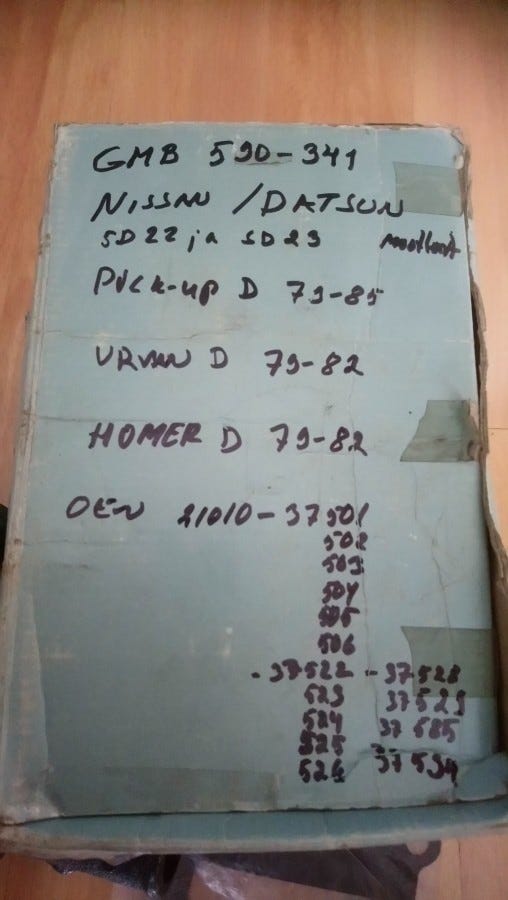 GMB 590-341
NISSAN / DATSUN
SD22 ja SD23 mootorit
PICK-UP D 79-85
URVAN D 79-82
HOMER D 79-82
OEN 21010-37501
502
503
504
505
506
-37522 -37528
523 37529
524 37585
525 37594
526